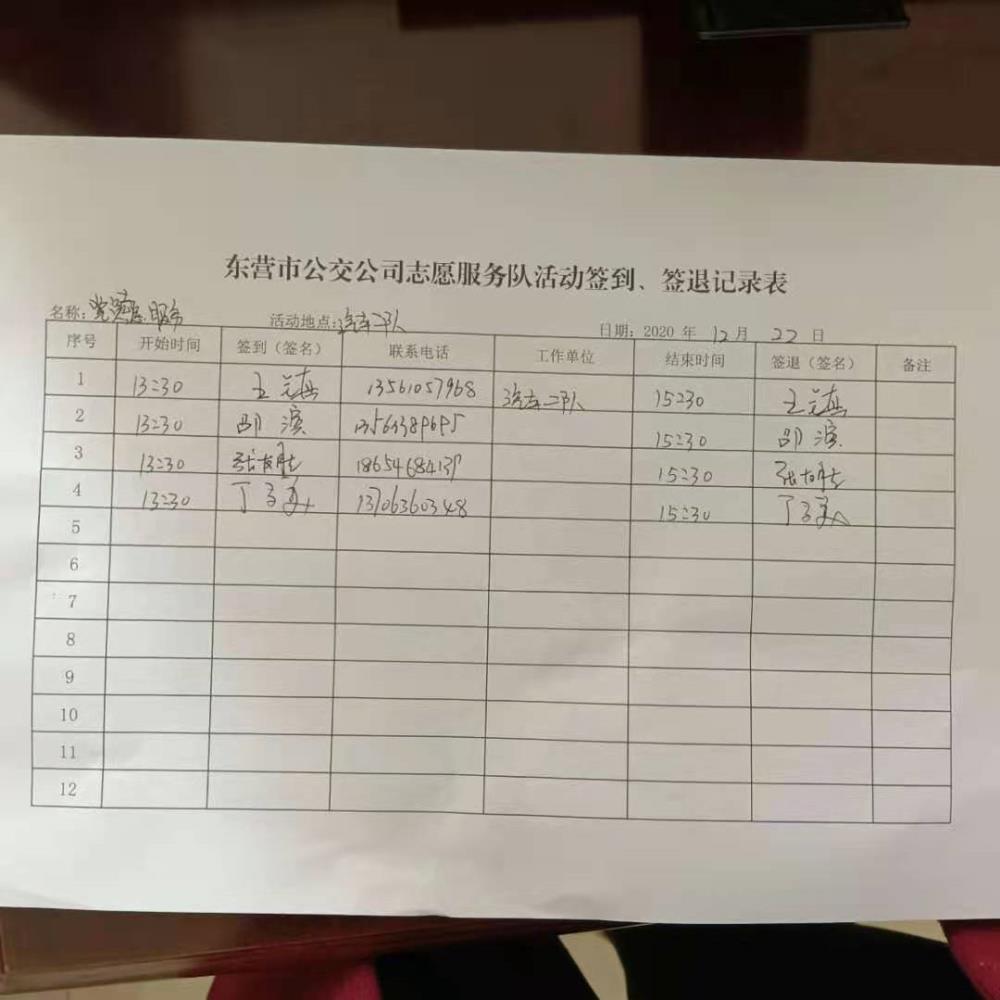 东营市公交公司志愿服务队活动签到、签退记录表
名称: 服务 活动地点:汽车二队 日期: 2020 年 12 月 22 日
序号 开始时间 签到（签名） 联系电话 工作单位 结束时间 签退（签名） 备注
1 13:30 王 13561057968 汽车二队 15:30 王
2 13:30 邵滨 15:30 邵滨
3 13:30 张 15:30 张
4 13:30 丁 13706360348 15:30 丁
5
6
7
8
9
10
11
12